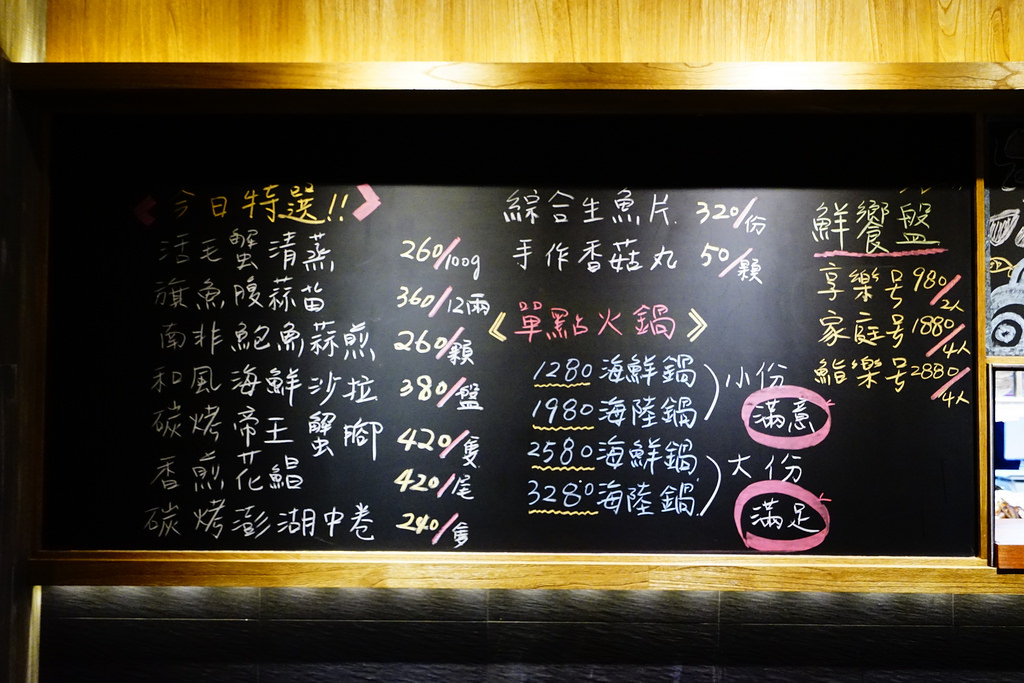 今日特選!!
活毛蟹清蒸 260/100g
旗魚腹蒜苗 360/12兩
南非鮑魚蒜煎 260/顆
和風海鮮沙拉 380/盤
碳烤帝王蟹腳 420/隻
香煎花鯧 420/尾
碳烤澎湖中卷 240/隻
綜合生魚片 320/份
手作香菇丸 50/顆
《單點火鍋》
1280海鮮鍋
1980海陸鍋
小份
滿意
2580海鮮鍋
3280海陸鍋
大份
滿足
鮮饗盤
享樂号980/2人
家庭号1880/4人
鮨樂号2880/4人